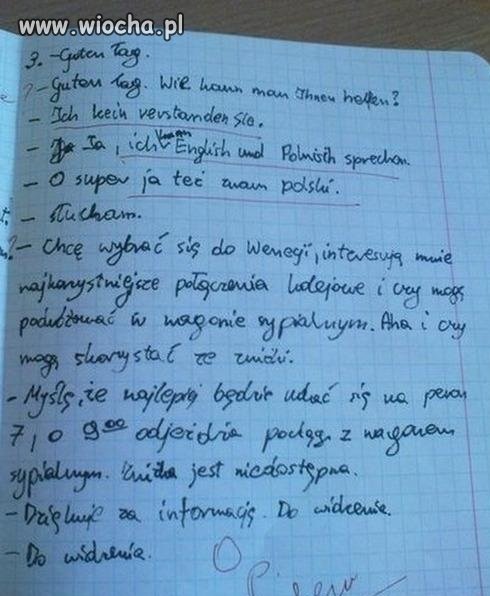 www.wiocha.pl
3. - Guten Tag.
- Guten Tag. Wie kann man Ihnen helfen?
- Ich kein verstanden Sie.
- Ja, ich kann English und Polnisch sprechen.
- O super ja też znam polski.
- Słucham.
- Chcę wybrać się do Wenegi, interesują mnie
najkorzystniejsze połączenia kolejowe i czy mogę
podróżować w wagonie sypialnym. Aha i czy
mogę skorzystać ze zniżki.
- Myślę, że najlepiej będzie udać się na peron
7, o 9⁰⁰ odjeżdża pociąg z wagonem
sypialnym. Zniżka jest niedostępna.
- Dziękuję za informację. Do widzenia.
- Do widzenia.